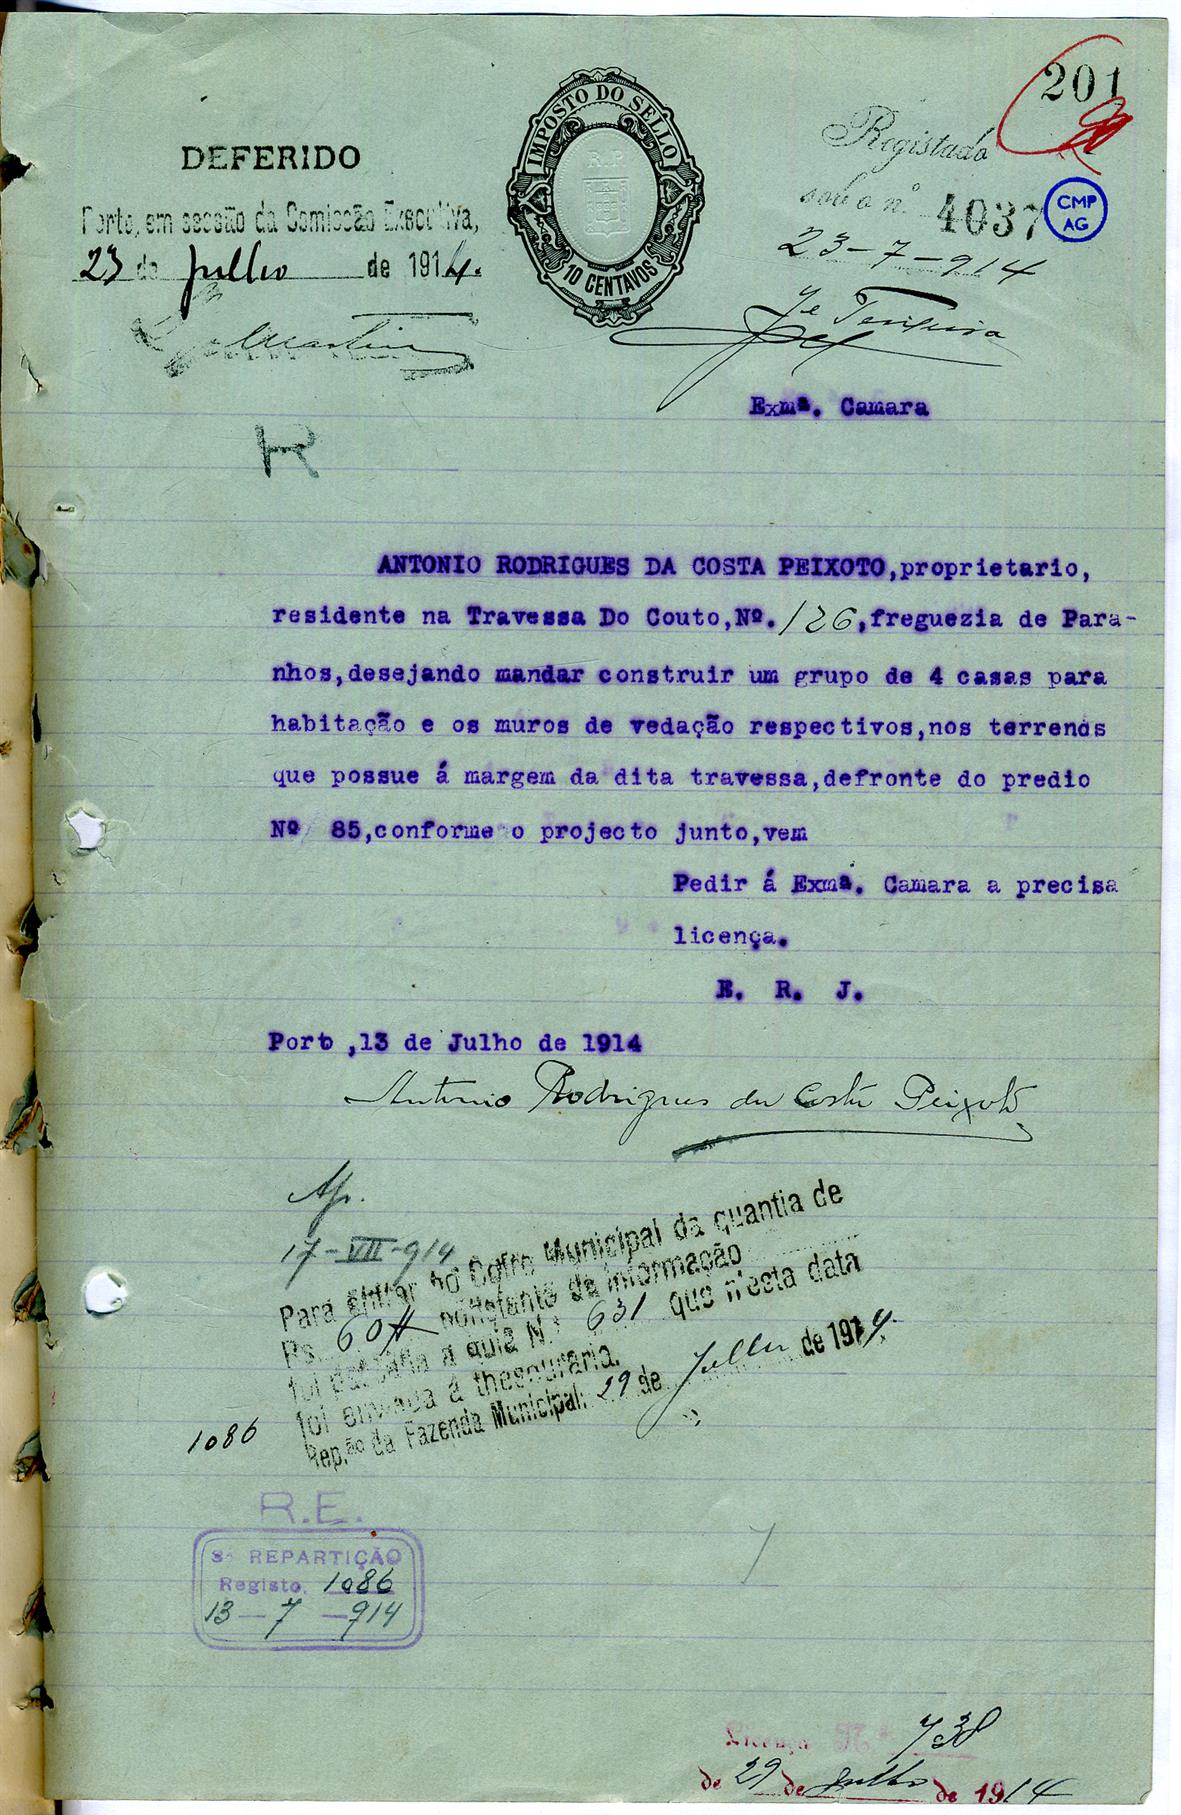 201
DEFERIDO
Porto, em sessão da Comissão Executiva,
23 de Julho de 1914.
IMPOSTO DO SELLO
R.P.
10 CENTAVOS
Registado
sob o nº 4037
CMP
AG
23-7-914
Exmª. Camara
R
ANTONIO RODRIGUES DA COSTA PEIXOTO,proprietario,
residente na Travessa Do Couto,Nº.126,freguezia de Para-
nhos,desejando mandar construir um grupo de 4 casas para
habitação e os muros de vedação respectivos,nos terrenos
que possue á margem da dita travessa,defronte do predio
Nº 85,conforme o projecto junto,vem
Pedir á Exmª. Camara a precisa
licença.
E. R. J.
Porto,13 de Julho de 1914
Antonio Rodrigues da Costa Peixoto
17-VII-914
Para entrar no Cofre Municipal da quantia de
Rs. 60$ constante da informação
foi passada a guia N.º 631 que n'esta data
foi enviada á thesouraria.
Rep.ção da Fazenda Municipal, 29 de Julho de 1914.
1086
R.E.
3ª REPARTIÇÃO
Registo. 1086
13-7-914
Licença N.º 738
de 29 de Julho de 1914